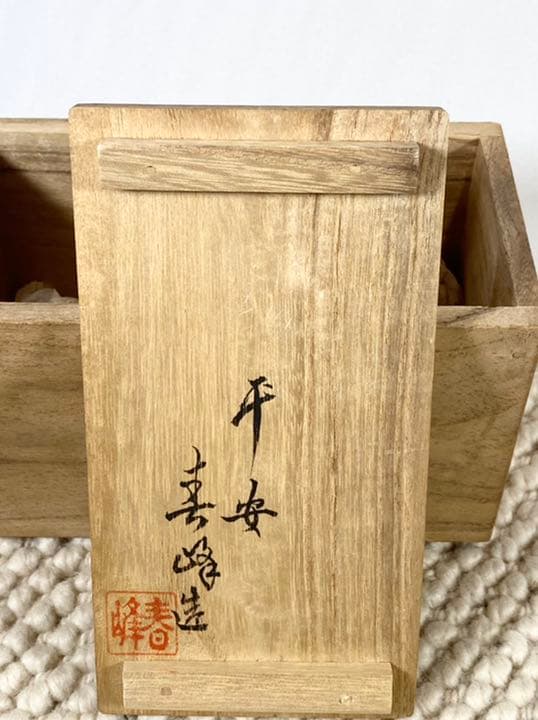 平安
春峰造
春峰